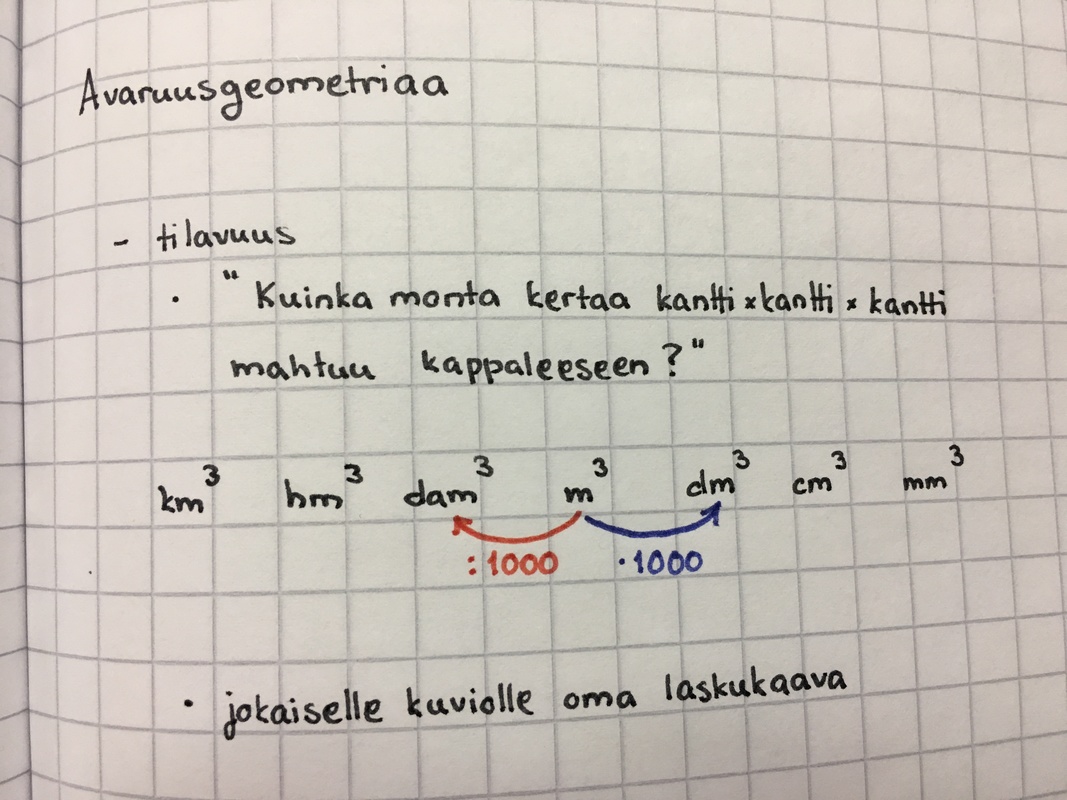 Avaruusgeometriaa
- tilavuus
· "Kuinka monta kertaa kantti x kantti x kantti
mahtuu kappaleeseen?"
km³ hm³ dam³ m³ dm³ cm³ mm³
:1000 ·1000
· jokaiselle kuviolle oma laskukaava